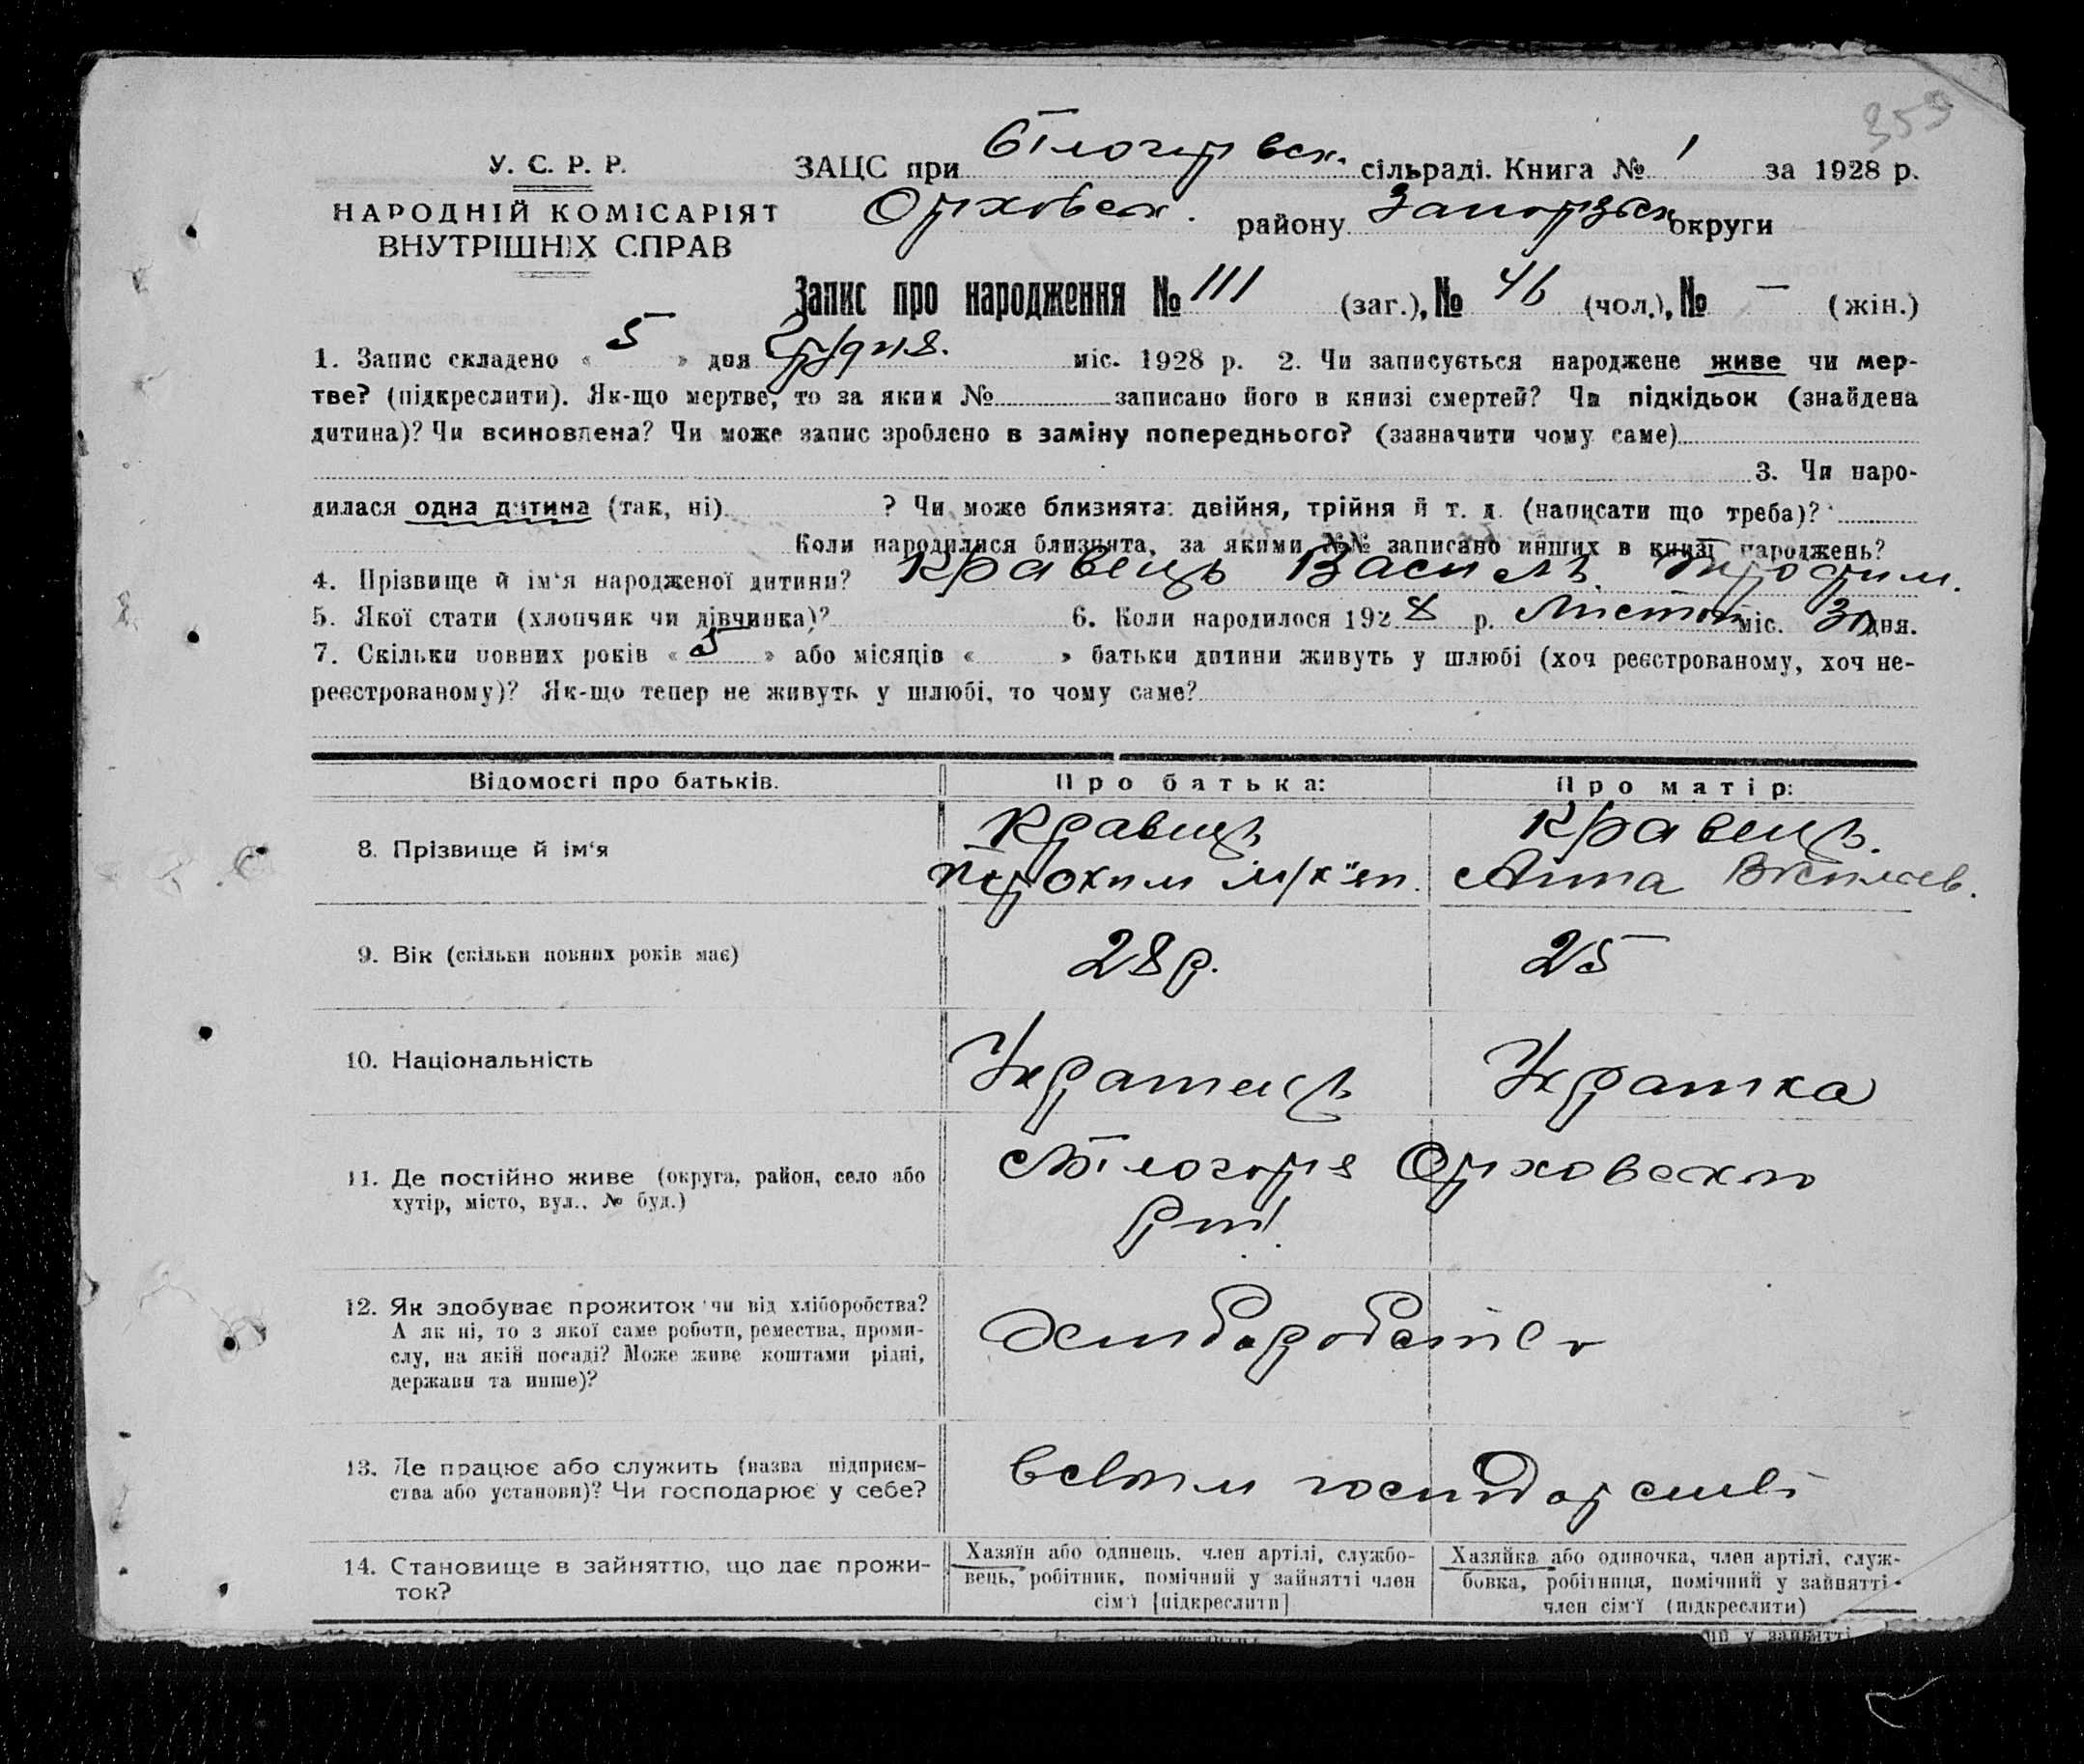 359
У. С. Р. Р.
НАРОДНІЙ КОМІСАРІЯТ
ВНУТРІШНІХ СПРАВ
ЗАЦС при Білогірвск. сільраді. Книга № 1 за 1928 р.
Оріховск. району Запорізьк округи
Запис про народження № 111 (заг.), № 46 (чол.), № — (жін.)
1. Запис складено « 5 » дня Грудня. міс. 1928 р. 2. Чи записується народжене живе чи мер-
тве? (підкреслити). Як-що мертве, то за яким № записано його в книзі смертей? Чи підкідьок (знайдена
дитина)? Чи всиновлена? Чи може запис зроблено в заміну попереднього? (зазначити чому саме)
3. Чи наро-
дилася одна дитина (так, ні) ? Чи може близнята: двійня, трійня й т. д. (написати що треба)?
Коли народилися близнята, за якими №№ записано инших в книзі народжень?
4. Прізвище й ім'я народженої дитини? Кравець Василь
5. Якої стати (хлопчик чи дівчинка)? 6. Коли народилося 1928 р. Листоп міс. 30 дня.
7. Скільки повних років « 5 » або місяців « » батьки дитини живуть у шлюбі (хоч реєстрованому, хоч не-
реєстрованому)? Як-що тепер не живуть у шлюбі, то чому саме?
Відомості про батьків.
Про батька:
Про матір:
8. Прізвище й ім'я
Кравець
Кравець.
Анна Васильев.
9. Вік (скільки повних років має)
28 р.
25
10. Національність
Українець
Українка
11. Де постійно живе (округа, район, село або
хутір, місто, вул., № буд.)
с Білогірья Оріховского
рай.
12. Як здобуває прожиток чи від хліборобства?
А як ні, то з якої саме роботи, ремества, проми-
слу, на якій посаді? Може живе коштами рідні,
держави та инше)?
Хліборобство
13. Де працює або служить (назва підприєм-
ства або установи)? Чи господарює у себе?
всвоїм господарстві
14. Становище в зайняттю, що дає прожи-
ток?
Хазяїн або одинець, член артілі, службо-
вець, робітник, помічний у зайнятті член
сім'ї [підкреслити]
Хазяйка або одиночка, член артілі, служ-
бовка, робітниця, помічний у зайнятті
член сім'ї (підкреслити)